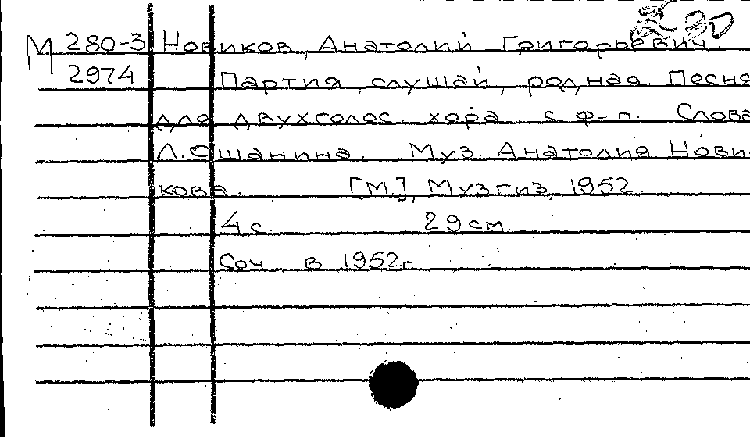 М 280-3 Новиков, Анатолий Григорьевич.
2974 Партия, слушай, родная. Песня
для двухголос. хора с ф-п. Слова
Л. Ошанина. Муз. Анатолия Нови-
кова. [М.], Музгиз, 1952.
4 с. 29 см.
Соч. в 1952 г.